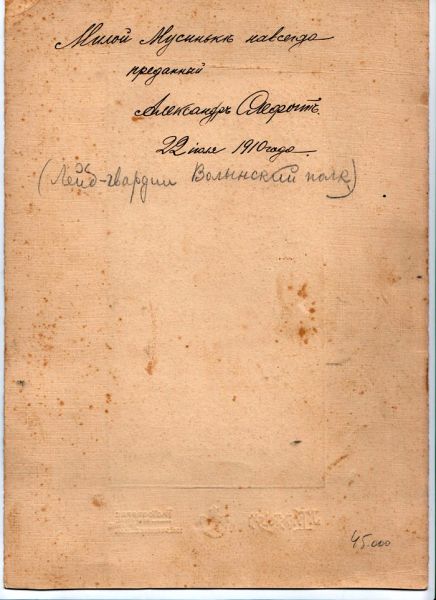 Милой Мусинькѣ навсегда
преданный
Александръ
22 июля 1910 года
(Лейб-гвардии Волынский полк)
45.000